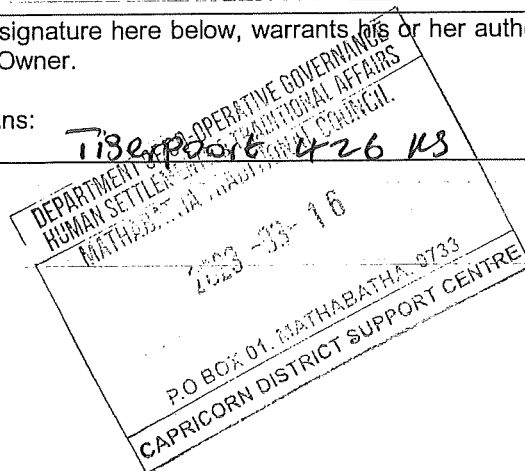 signature here below, warrants his or her autho
Owner.
ns:
Tigerpoort 426 KS
DEPARTMENT OF CO-OPERATIVE GOVERNANCE
HUMAN SETTLEMENTS & TRADITIONAL AFFAIRS
MATHABATHA TRADITIONAL COUNCIL
2023 -03- 16
P.O BOX 01. MATHABATHA. 0733
CAPRICORN DISTRICT SUPPORT CENTRE